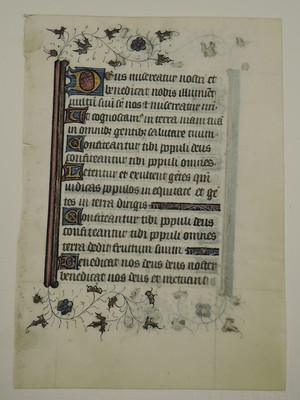 Deus misereatur nostri et
benedicat nobis illuminet
vultū suū sup nos & misereatur nrī
Ut cognoscamꝰ in terra viam tuā
in omnibꝰ gentibꝰ salutare tuum
Confiteantur tibi populi deus
confiteantur tibi populi omnes
Letentur et exultent gētes qm̄
iudicas populos in equitate et gē
tes in terra dirigis
Confiteantur tibi populi deus
confiteantur tibi populi omnes
terra dedit fructum suum
Benedicat nos deus deus noster
benedicat nos deus et metuant